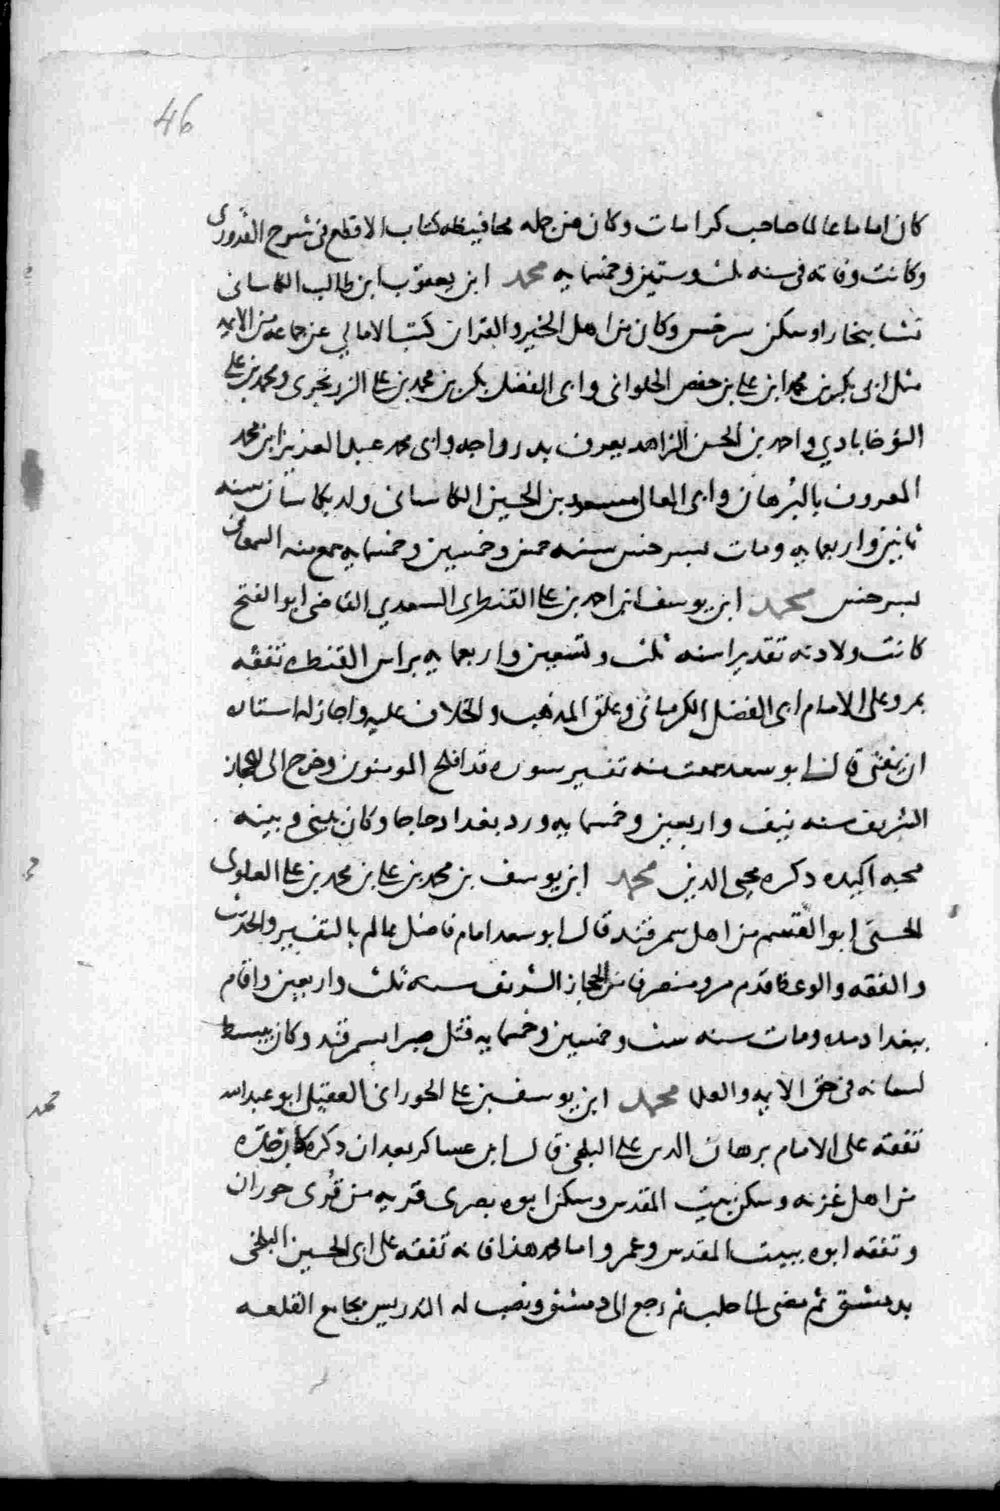 46
كان اماما عالما صاحب كرامات وكان من جمله محافيظه كتاب الاقطع فى شرح القدورى
وكانت وفاته فى سنه ثلث وستين وخمسمايه محمد ابن يعقوب ابن طالب الكاسانى
نشا ببخارا وسكن سرخس وكان من اهل الخير والقران كتب الامالي عن جماعه من الايمه
مثل ابى بكر بن محمد ابن على بن حفص الحلوانى وابى الفضل بكر بن محمد بن على الزرنجرى ومحمد بن على
واحمد بن الحسن الزاهد يعرف بدرواجه وابى محمد عبد العزيز ابن محمد
المعروف بالبرهان وابى المعالى مسعود بن الحسين الكاسانى ولد بكاسان سنه
ثمانين واربعمايه ومات بسرخس سنه خمس وخمسين وخمسمايه سمع منه السمعانى
بسرخس محمد ابن يوسف ابن احمد بن على القنطرى السعدي القاضى ابو الفتح
كانت ولادته تقديرا سنه ثلث وتسعين واربعمايه براس القنطره تفقه
بمرو على الامام ابى الفضل الكرمانى وعلق المذهب والخلاف عليه واجاز له استاده
ان يفتى قال ابو سعد سمعت منه تفسير سوره قد افلح المومنون وخرج الى الحجاز
الشريف سنه نيف واربعين وخمسمايه ورد بغداد حاجا وكان بينى وبينه
محبه اكيده ذكره محيى الدين محمد ابن يوسف بن محمد بن على بن محمد بن على العلوى
الحسنى ابو القسم من اهل سمرقند قال ابو سعد امام فاضل عالم بالتفسير والحديث
والفقه والوعظ قدم مرو منصرفا من الحجاز الشريف سنه ثلث واربعين واقام
ببغداد مده ومات سنه ست وخمسين وخمسمايه قتل صبرا بسمرقند وكان يبسط
لسانه فى حق الايمه والعلما محمد ابن يوسف بن على الحورانى العقيلى ابو عبد الله
تفقه على الامام برهان الدين على البلخى قال ابن عساكر بعد ان ذكره كان جده
من اهل غزنه وسكن بيت المقدس وسكن ابوه بصرى قريه من قرى حوران
وتفقه ابوه ببيت المقدس وعمر واما محمد هذا فانه تفقه على ابى الحسين البلخى
بدمشق ثم مضى الى حلب ثم رجع الى دمشق ونصب له التدريس بجامع القلعه
محمد